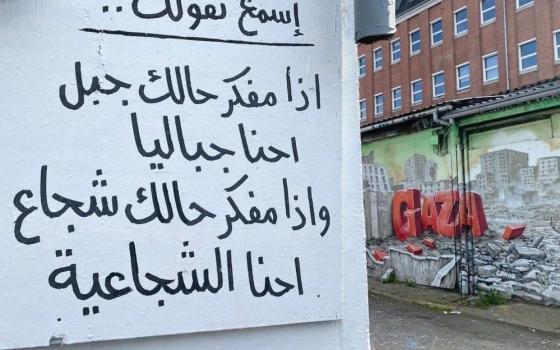 إسمع نقولك ..
اذا مفكر حالك جبل
احنا جباليا
واذا مفكر حالك شجاع
احنا الشجاعية
GAZA